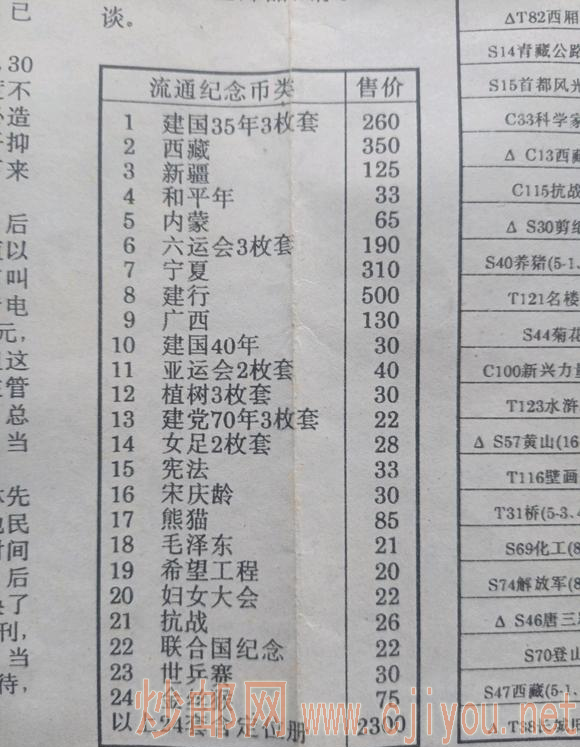 已
谈。
30
不
造
抑
来
后
以
叫
电
元,
这
管
总
当
先
民
时间
后
了
刊,
当
待,
流通纪念币类 售价
1 建国35年3枚套 260
2 西藏 350
3 新疆 125
4 和平年 33
5 内蒙 65
6 六运会3枚套 190
7 宁夏 310
8 建行 500
9 广西 130
10 建国40年 30
11 亚运会2枚套 40
12 植树3枚套 30
13 建党70年3枚套 22
14 女足2枚套 28
15 宪法 33
16 宋庆龄 30
17 熊猫 85
18 毛泽东 21
19 希望工程 20
20 妇女大会 22
21 抗战 26
22 联合国纪念 22
23 世乒赛 30
24 金丝猴 75
以上24套含定位册 2300
ΔT82西厢
S14青藏公路
S15首都风光
C33科学家
Δ C13西藏
C115抗战
Δ S30剪纸
S40养猪(5-1、
T121名楼
S44菊花
C100新兴力量
T123水浒
Δ S57黄山(16
T116壁画
T31桥(5-3、4
S69化工(8
S74解放军(8
Δ S46唐三
S70登山
S47西藏(5-1、
Δ T38长城
炒邮网www.cjiyou.net